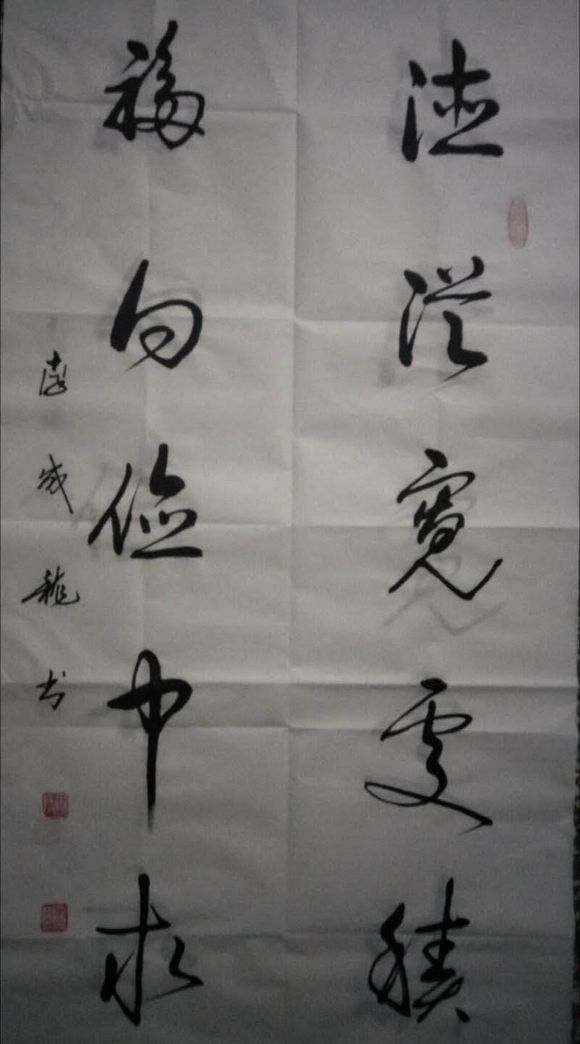 德從寬處積
福向儉中求
龍书